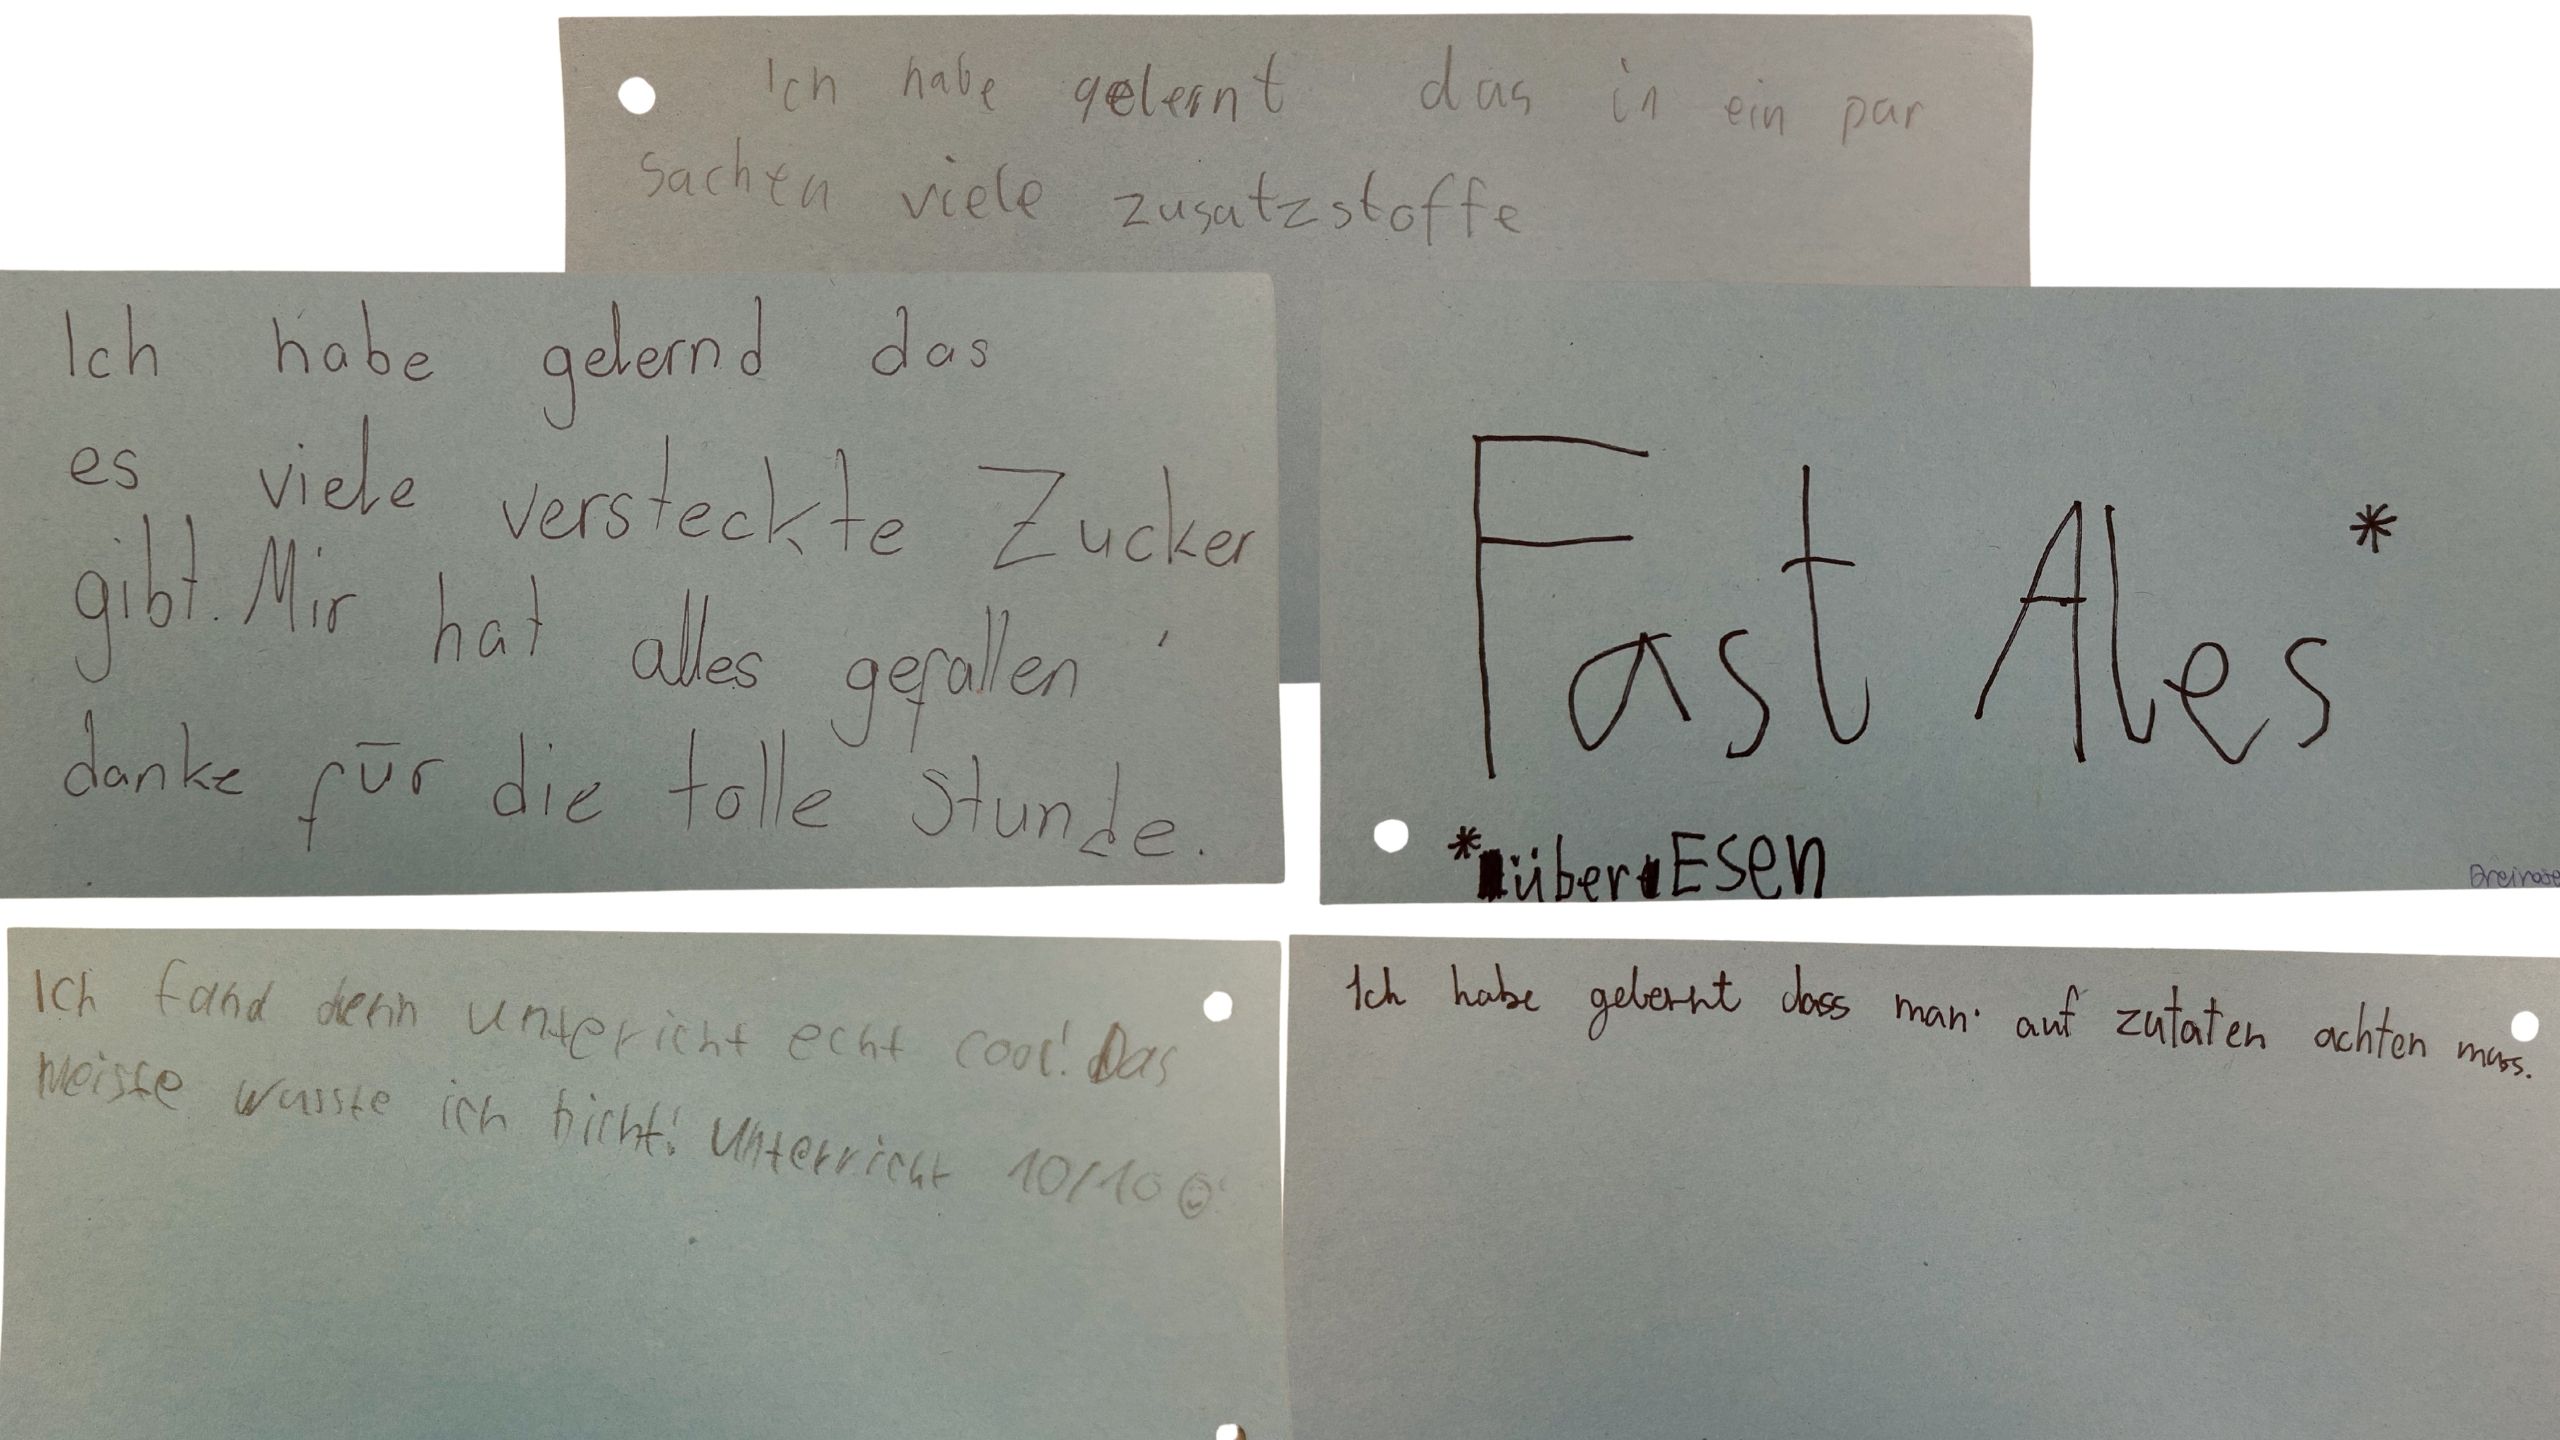 Ich habe gelernt das in ein par
sachen viele zusatzstoffe
Ich habe gelernd das
es viele versteckte Zucker
gibt. Mir hat alles gefallen
danke für die tolle Stunde.
Fast Ales*
*über Esen
Ich fand denn unterricht echt cool! Das
meiste wusste ich nicht! Unterricht 10/10 ☺
Ich habe gelernt dass man auf zutaten achten muss.